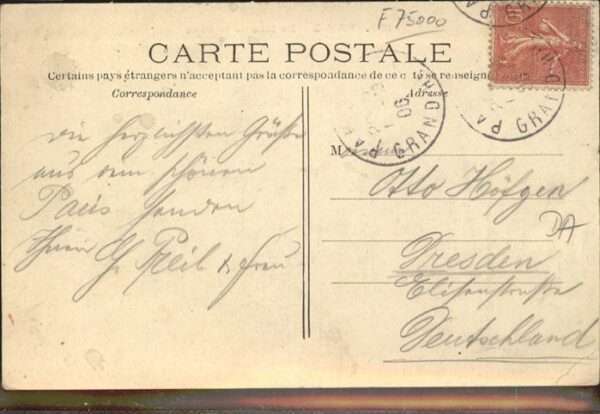 F 75000
CARTE POSTALE
Certains pays étrangers n'acceptant pas la correspondance de ce c té se renseign
Correspondance
Adresse
die herzlichsten Grüße
aus dem schönen
Paris senden
Ihnen G. Preil & Frau
M
Otto Höfgen
DA
Dresden
Elisenstraße
Deutschland
PA GRAND H
06
PA GRAND H